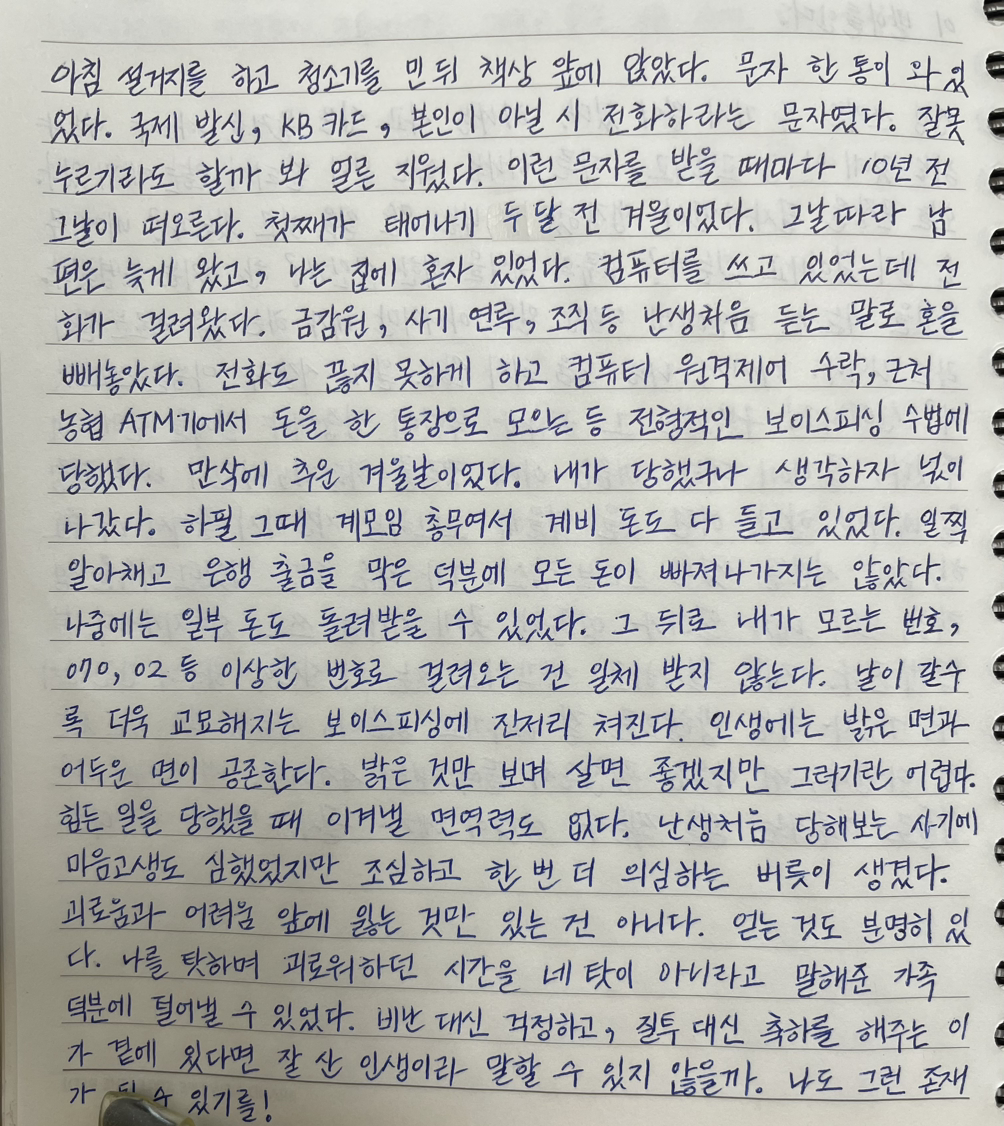 아침 설거지를 하고 청소기를 민 뒤 책상 앞에 앉았다. 문자 한 통이 와 있
었다. 국제 발신, KB 카드, 본인이 아닐 시 전화하라는 문자였다. 잘못
누르기라도 할까 봐 얼른 지웠다. 이런 문자를 받을 때마다 10년 전
그날이 떠오른다. 첫째가 태어나기 두 달 전 겨울이었다. 그날따라 남
편은 늦게 왔고, 나는 집에 혼자 있었다. 컴퓨터를 쓰고 있었는데 전
화가 걸려왔다. 금감원, 사기 연루, 조직 등 난생처음 듣는 말로 혼을
빼놓았다. 전화도 끊지 못하게 하고 컴퓨터 원격제어 수락, 근처
농협 ATM기에서 돈을 한 통장으로 모으는 등 전형적인 보이스피싱 수법에
당했다. 만삭에 추운 겨울날이었다. 내가 당했구나 생각하자 넋이
나갔다. 하필 그때 계모임 총무여서 계비 돈도 다 들고 있었다. 일찍
알아채고 은행 출금을 막은 덕분에 모든 돈이 빠져나가지는 않았다.
나중에는 일부 돈도 돌려받을 수 있었다. 그 뒤로 내가 모르는 번호,
070, 02 등 이상한 번호로 걸려오는 건 일체 받지 않는다. 날이 갈수
록 더욱 교묘해지는 보이스피싱에 진저리 쳐진다. 인생에는 밝은 면과
어두운 면이 공존한다. 밝은 것만 보며 살면 좋겠지만 그러기란 어렵다.
힘든 일을 당했을 때 이겨낼 면역력도 없다. 난생처음 당해보는 사기에
마음고생도 심했었지만 조심하고 한 번 더 의심하는 버릇이 생겼다.
괴로움과 어려움 앞에 잃는 것만 있는 건 아니다. 얻는 것도 분명히 있
다. 나를 탓하며 괴로워하던 시간을 네 탓이 아니라고 말해준 가족
덕분에 털어낼 수 있었다. 비난 대신 걱정하고, 질투 대신 축하를 해주는 이
가 곁에 있다면 잘 산 인생이라 말할 수 있지 않을까. 나도 그런 존재
가 수 있기를!